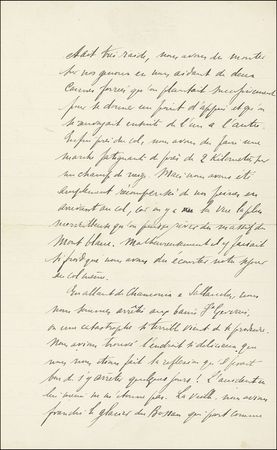 était très raide, nous avons dû monter
sur nos genoux en nous aidant de deux
cannes ferrées qu'on plantait
pour se donner un point d'appui et qu'on
se renvoyait ensuite de l'un à l'autre.
Enfin près du col, nous avons dû faire une
marche fatigante de près de 2 kilomètres sur
un champ de neige. Mais nous avons été
amplement récompensés de nos peines en
arrivant au col, car on y a la vue la plus
merveilleuse qu'on puisse rêver du massif du
Mont blanc. Malheureusement il y faisait
si froid que nous avons dû écourter notre séjour
au col même.
En allant de Chamonix à Sallanches, nous
nous sommes arrêtés aux bains St Gervais,
où une catastrophe si terrible vient de se produire.
Nous avions trouvé l'endroit si délicieux que
nous nous étions fait la réflexion qu'il ferait
bon de s'y arrêter quelques jours! L'accident en
lui même ne m'étonne pas. La veille nous avions
franchi le glacier des Bossons qui fort comme